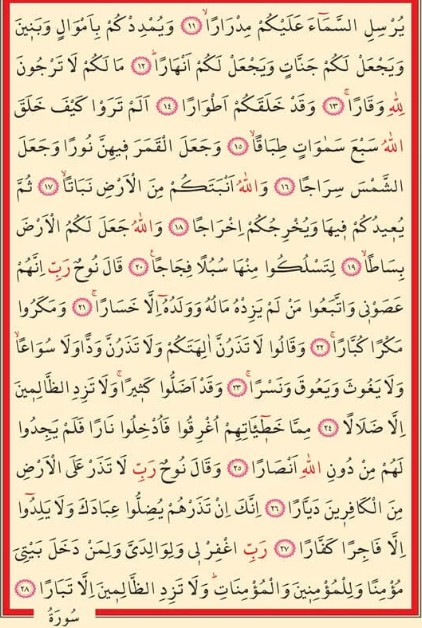 يُرْسِلِ السَّمَٓاءَ عَلَيْكُمْ مِدْرَارًاۙ ﴿١١﴾ وَيُمْدِدْكُمْ بِاَمْوَالٍ وَبَنٖينَ
وَيَجْعَلْ لَكُمْ جَنَّاتٍ وَيَجْعَلْ لَكُمْ اَنْهَارًاۜ ﴿١٢﴾ مَا لَكُمْ لَا تَرْجُونَ
لِلّٰهِ وَقَارًاۚ ﴿١٣﴾ وَقَدْ خَلَقَكُمْ اَطْوَارًا ﴿١٤﴾ اَلَمْ تَرَوْا كَيْفَ خَلَقَ
اللّٰهُ سَبْعَ سَمٰوَاتٍ طِبَاقًاۙ ﴿١٥﴾ وَجَعَلَ الْقَمَرَ فٖيهِنَّ نُورًا وَجَعَلَ
الشَّمْسَ سِرَاجًا ﴿١٦﴾ وَاللّٰهُ اَنْبَتَكُمْ مِنَ الْاَرْضِ نَبَاتًاۙ ﴿١٧﴾ ثُمَّ
يُعٖيدُكُمْ فٖيهَا وَيُخْرِجُكُمْ اِخْرَاجًا ﴿١٨﴾ وَاللّٰهُ جَعَلَ لَكُمُ الْاَرْضَ
بِسَاطًاۙ ﴿١٩﴾ لِتَسْلُكُوا مِنْهَا سُبُلًا فِجَاجًا۟ ﴿٢٠﴾ قَالَ نُوحٌ رَبِّ اِنَّهُمْ
عَصَوْنٖي وَاتَّبَعُوا مَنْ لَمْ يَزِدْهُ مَالُهُ وَوَلَدُهُٓ اِلَّا خَسَارًاۚ ﴿٢١﴾ وَمَكَرُوا
مَكْرًا كُبَّارًاۚ ﴿٢٢﴾ وَقَالُوا لَا تَذَرُنَّ اٰلِهَتَكُمْ وَلَا تَذَرُنَّ وَدًّا وَلَا سُوَاعًاۙ
وَلَا يَغُوثَ وَيَعُوقَ وَنَسْرًاۚ ﴿٢٣﴾ وَقَدْ اَضَلُّوا كَثٖيرًاۚ وَلَا تَزِدِ الظَّالِمٖينَ
اِلَّا ضَلَالًا ﴿٢٤﴾ مِمَّا خَطٖٓيـَٔاتِهِمْ اُغْرِقُوا فَاُدْخِلُوا نَارًا فَلَمْ يَجِدُوا
لَهُمْ مِنْ دُونِ اللّٰهِ اَنْصَارًا ﴿٢٥﴾ وَقَالَ نُوحٌ رَبِّ لَا تَذَرْ عَلَى الْاَرْضِ
مِنَ الْكَافِرٖينَ دَيَّارًا ﴿٢٦﴾ اِنَّكَ اِنْ تَذَرْهُمْ يُضِلُّوا عِبَادَكَ وَلَا يَلِدُٓوا
اِلَّا فَاجِرًا كَفَّارًا ﴿٢٧﴾ رَبِّ اغْفِرْ لٖي وَلِوَالِدَيَّ وَلِمَنْ دَخَلَ بَيْتِيَ
مُؤْمِنًا وَلِلْمُؤْمِنٖينَ وَالْمُؤْمِنَاتِۜ وَلَا تَزِدِ الظَّالِمٖينَ اِلَّا تَبَارًا ﴿٢٨﴾
سُورَةُ